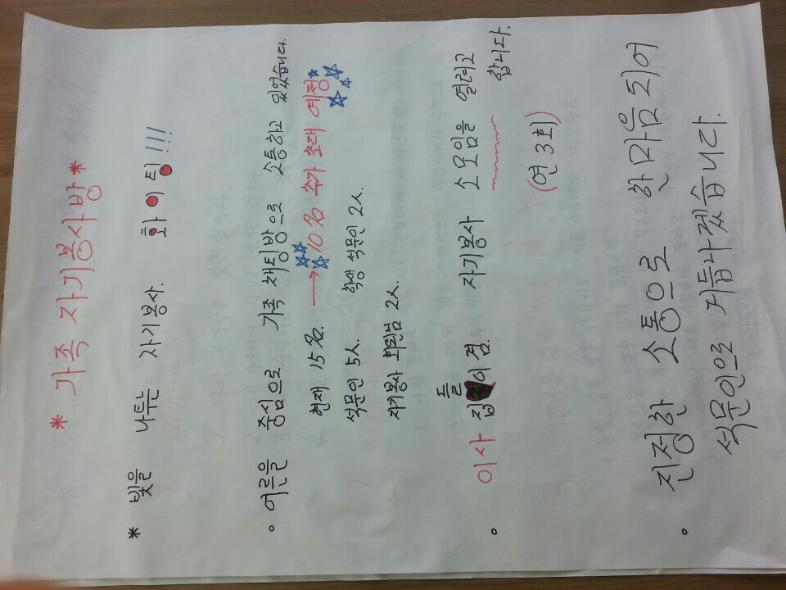 * 가족 자기봉사방 *
* 빛을 나투는 자기봉사. 화이팅!!!
◦ 어른을 중심으로 가족 채팅방으로 소통하고 있었습니다.
현재 15명. → 10명 추가 초대 예정
석문인 5人. 학생 석문인 2人.
자기봉사 회원님 2人.
◦ 이사 집들이 겸. 자기봉사 소모임을 열려고 합니다.
(연 3회)
◦ 진정한 소통으로 한마음 되어
석문인으로 거듭나겠습니다.